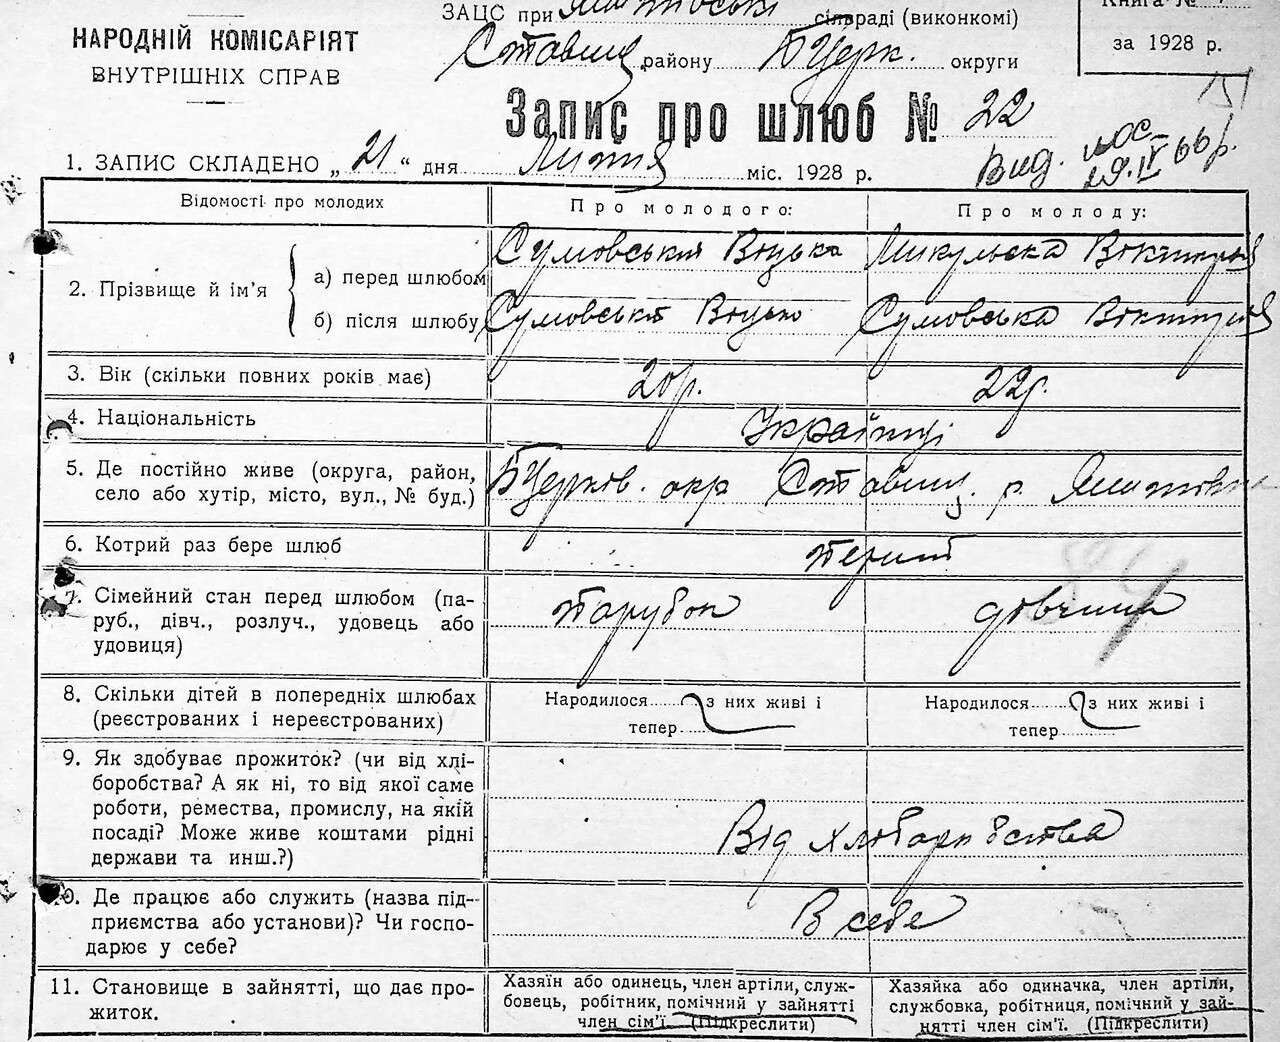 ЗАЦС при сільраді (виконкомі)
Книга №
НАРОДНІЙ КОМІСАРІЯТ
ВНУТРІШНІХ СПРАВ
Ставищ. району БЦерк. округи
за 1928 р.
Запис про шлюб № 22
Вид. 29.IV 66р.
1. ЗАПИС СКЛАДЕНО „21“ дня Лютня міс. 1928 р.
Відомості про молодих
Про молодого:
Про молоду:
2. Прізвище й ім'я
а) перед шлюбом
Сумовський Воцька
Микульска Вікторія
б) після шлюбу
Сумовський Воцько
Сумовська Вікторія
3. Вік (скільки повних років має)
20р.
22р.
4. Національність
Українці
5. Де постійно живе (округа, район,
село або хутір, місто, вул., № буд.)
БЦерков. окр Ставищ. р.
6. Котрий раз бере шлюб
перший
7. Сімейний стан перед шлюбом (па-
руб., дівч., розлуч., удовець або
удовиця)
парубок
дівчина
8. Скільки дітей в попередніх шлюбах
(реєстрованих і нереєстрованих)
Народилося з них живі і
тепер
Народилося з них живі і
тепер
9. Як здобуває прожиток? (чи від хлі-
боробства? А як ні, то від якої саме
роботи, ремества, промислу, на якій
посаді? Може живе коштами рідні
держави та инш.?)
Від хліборобства
10. Де працює або служить (назва під-
приємства або установи)? Чи госпо-
дарює у себе?
В себе
11. Становище в зайнятті, що дає про-
житок.
Хазяїн або одинець, член артілі, служ-
бовець, робітник, помічний у зайнятті
член сім'ї. (Підкреслити)
Хазяйка або одиначка, член артіли,
службовка, робітниця, помічний у зай-
нятті член сім'ї. (Підкреслити)